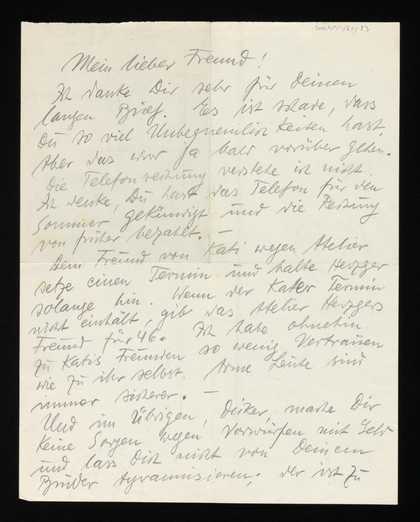 Mein lieber Freund!
Ich danke Dir sehr für Deinen
langen Brief. Es ist schade, dass
Du so viel Unbequemlichkeiten hast.
Aber das wird ja bald vorüber gehen.
Die Telefonrechnung verstehe ich nicht.
Ich denke, Du hast das Telefon für den
Sommer gekündigt und die Rechnung
von früher bezahlt. –
Dem Freund von Kati wegen Atelier
setze einen Termin und halte Herzger
solange hin. Wenn der Kater Termin
nicht einhält, gib das Atelier Herzgers
Freund für 46. Ich habe ohnehin
zu Katis Freunden so wenig Vertrauen
wie zu ihr selbst. Arme Leute sind
immer sicherer. –
Und im Übrigen, Dicker, mache Dir
keine Sorgen wegen Vorwürfen mit Geld
und lass Dich nicht von Deinem
Bruder tyrannisieren, der ist zu